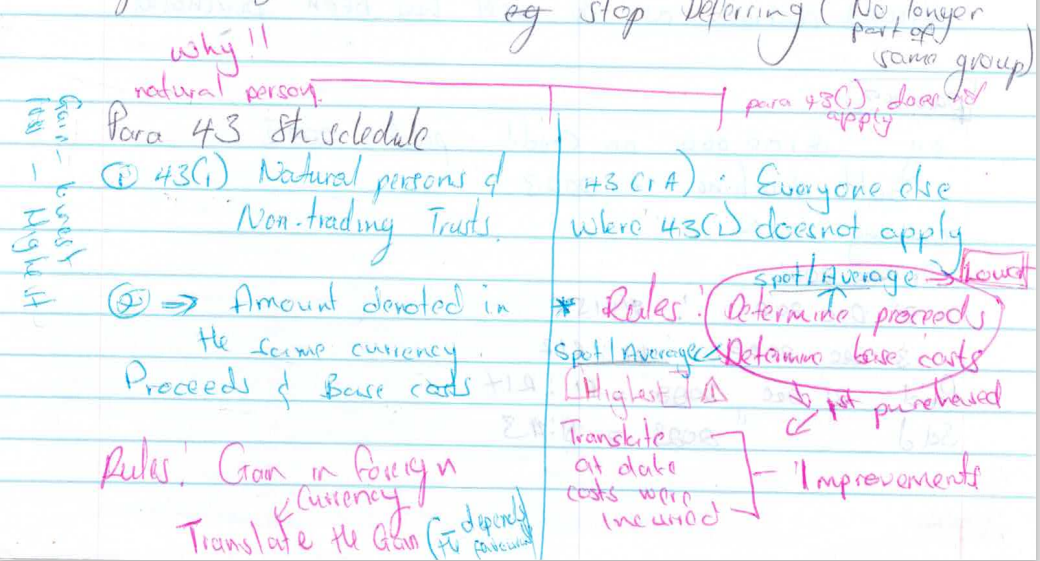 eg Stop Deferring (No longer
part of
same group)
why!!
natural person.
para 43(1) does not
apply
Para 43 8th scledule
① 43(1) Natural persons &
Non-trading Trusts.
② ⇒ Amount denoted in
the same currency.
Proceeds & Base costs
Rules! Gain in foreign
Currency
Translate the Gain (depends
favour
43(1A) : Everyone else
where 43(1) doesnot apply
spot/Average → Lowest
* Rules! Determine proceeds
Spot/Average Determine base costs
[Highest] ⚠
1st purchased
Translate
at date
costs were
incurred
Improvements
Gain - Lowest
loss - Highest